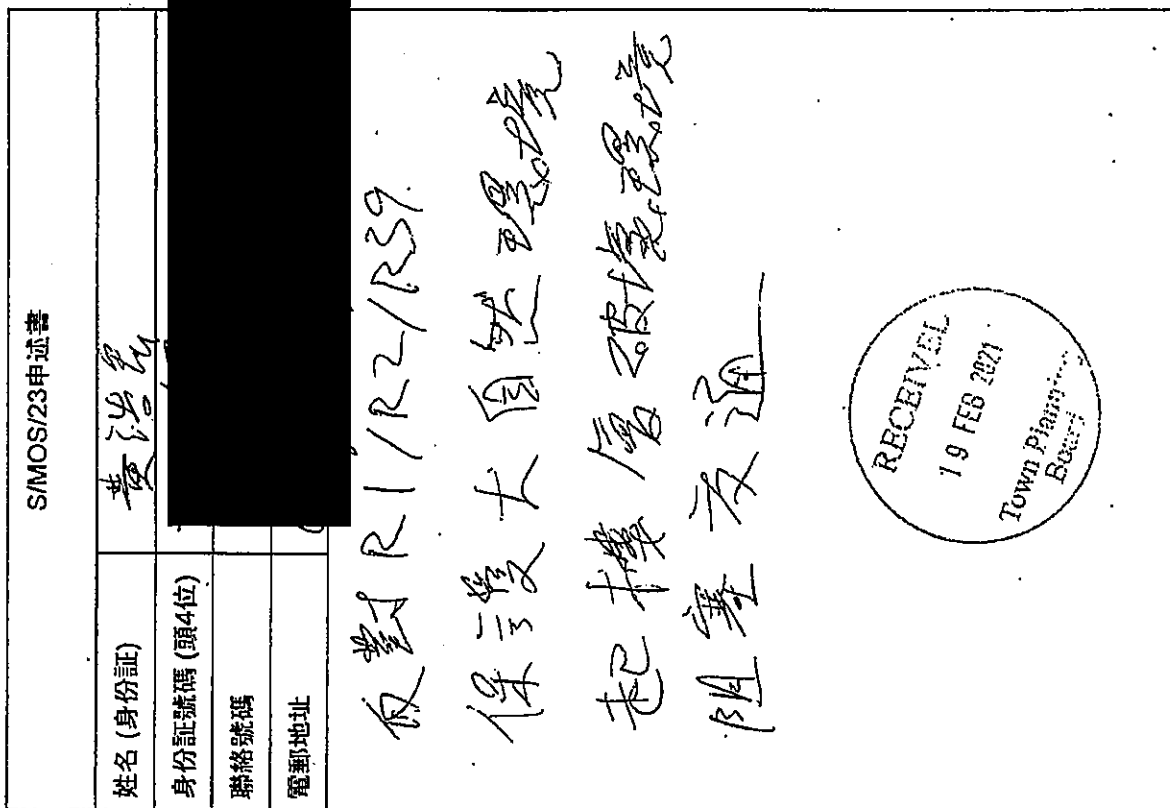 S/MOS/23申述書
姓名 (身份証)
黄浩
身份証號碼 (頭4位)
聯絡號碼
電郵地址
反對R1/R2/R39.
保護大自然環境
起樓會破壞環境
阻塞交通
RECEIVED
19 FEB 2021
Town Planning
Board